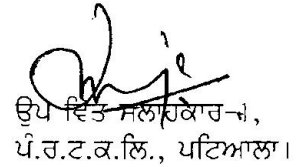 ਉਪ ਵਿੱਤ ਸਲਾਹਕਾਰ-1,
ਪੰ.ਰ.ਟ.ਕ.ਲਿ., ਪਟਿਆਲਾ।